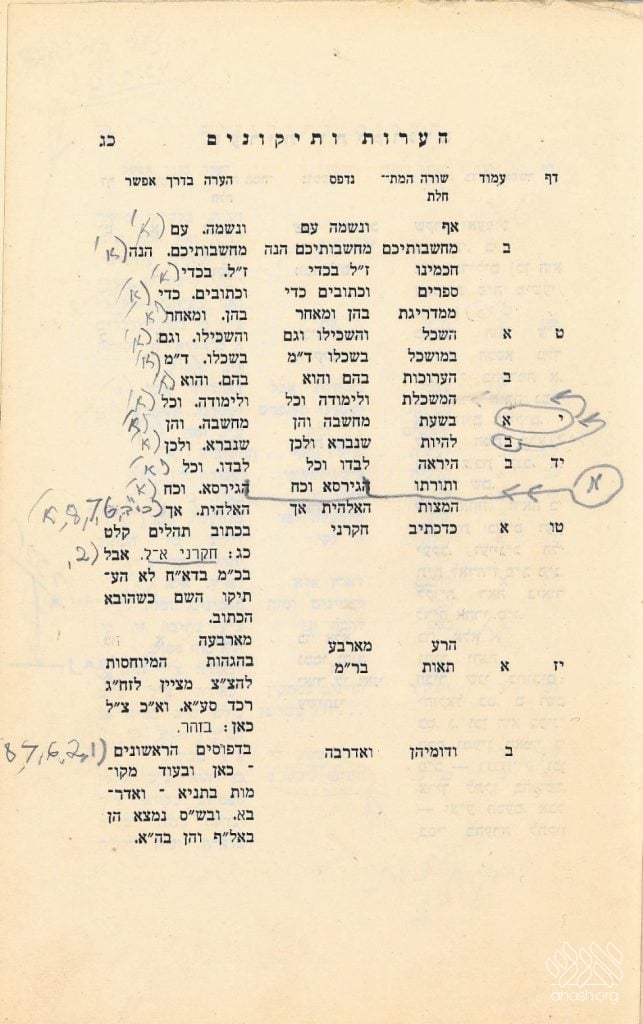 הערות ותיקונים כג
דף עמוד שורה המת־ נדפס הערה בדרך אפשר
חלת
אף ונשמה עם ונשמה. עם (א)
ב מחשבותיכם מחשבותיכם הנה מחשבותיכם. הנה (א)
חכמינו ז"ל בכדי ז"ל. בכדי (א)
ספרים וכתובים כדי וכתובים. כדי (א)
ממדריגת בהן ומאחר בהן. ומאחר (א
ט א השכל והשכילו וגם והשכילו. וגם (א)
במושכל בשכלו ד"מ בשכלו. ד"מ (א)
ב הערוכות בהם והוא בהם. והוא (א)
המשכלת ולימודה וכל ולימודה. וכל (א)
י א בשעת מחשבה והן מחשבה. והן (א)
ב להיות שנברא ולכן שנברא. ולכן (א
יד ב היראה לבדו וכל לבדו. וכל (א)
ותורתו הגירסא וכח הגירסא. וכח (א) א
המצות האלהית אך האלהית. אך
טו א כדכתיב חקרני בכתוב תהלים קלט
כג: חקרני א־ל. אבל (2,
בכ"מ בדא"ח לא הע־
תיקו השם כשהובא
הכתוב.
הרע מארבע מארבעה
יז א תאות בר"מ בהגהות המיוחסות
להצ"צ מציין לזח"ג
רכד סע"א. וא"כ צ"ל
כאן: בזהר.
ב ודומיהן ואדרבה בדפוסים הראשונים (1,2,6,7,8
־ כאן ובעוד מקו־
מות בתניא ־ ואדר־
בא. ובש"ס נמצא הן
באל"ף והן בה"א.
anash.org